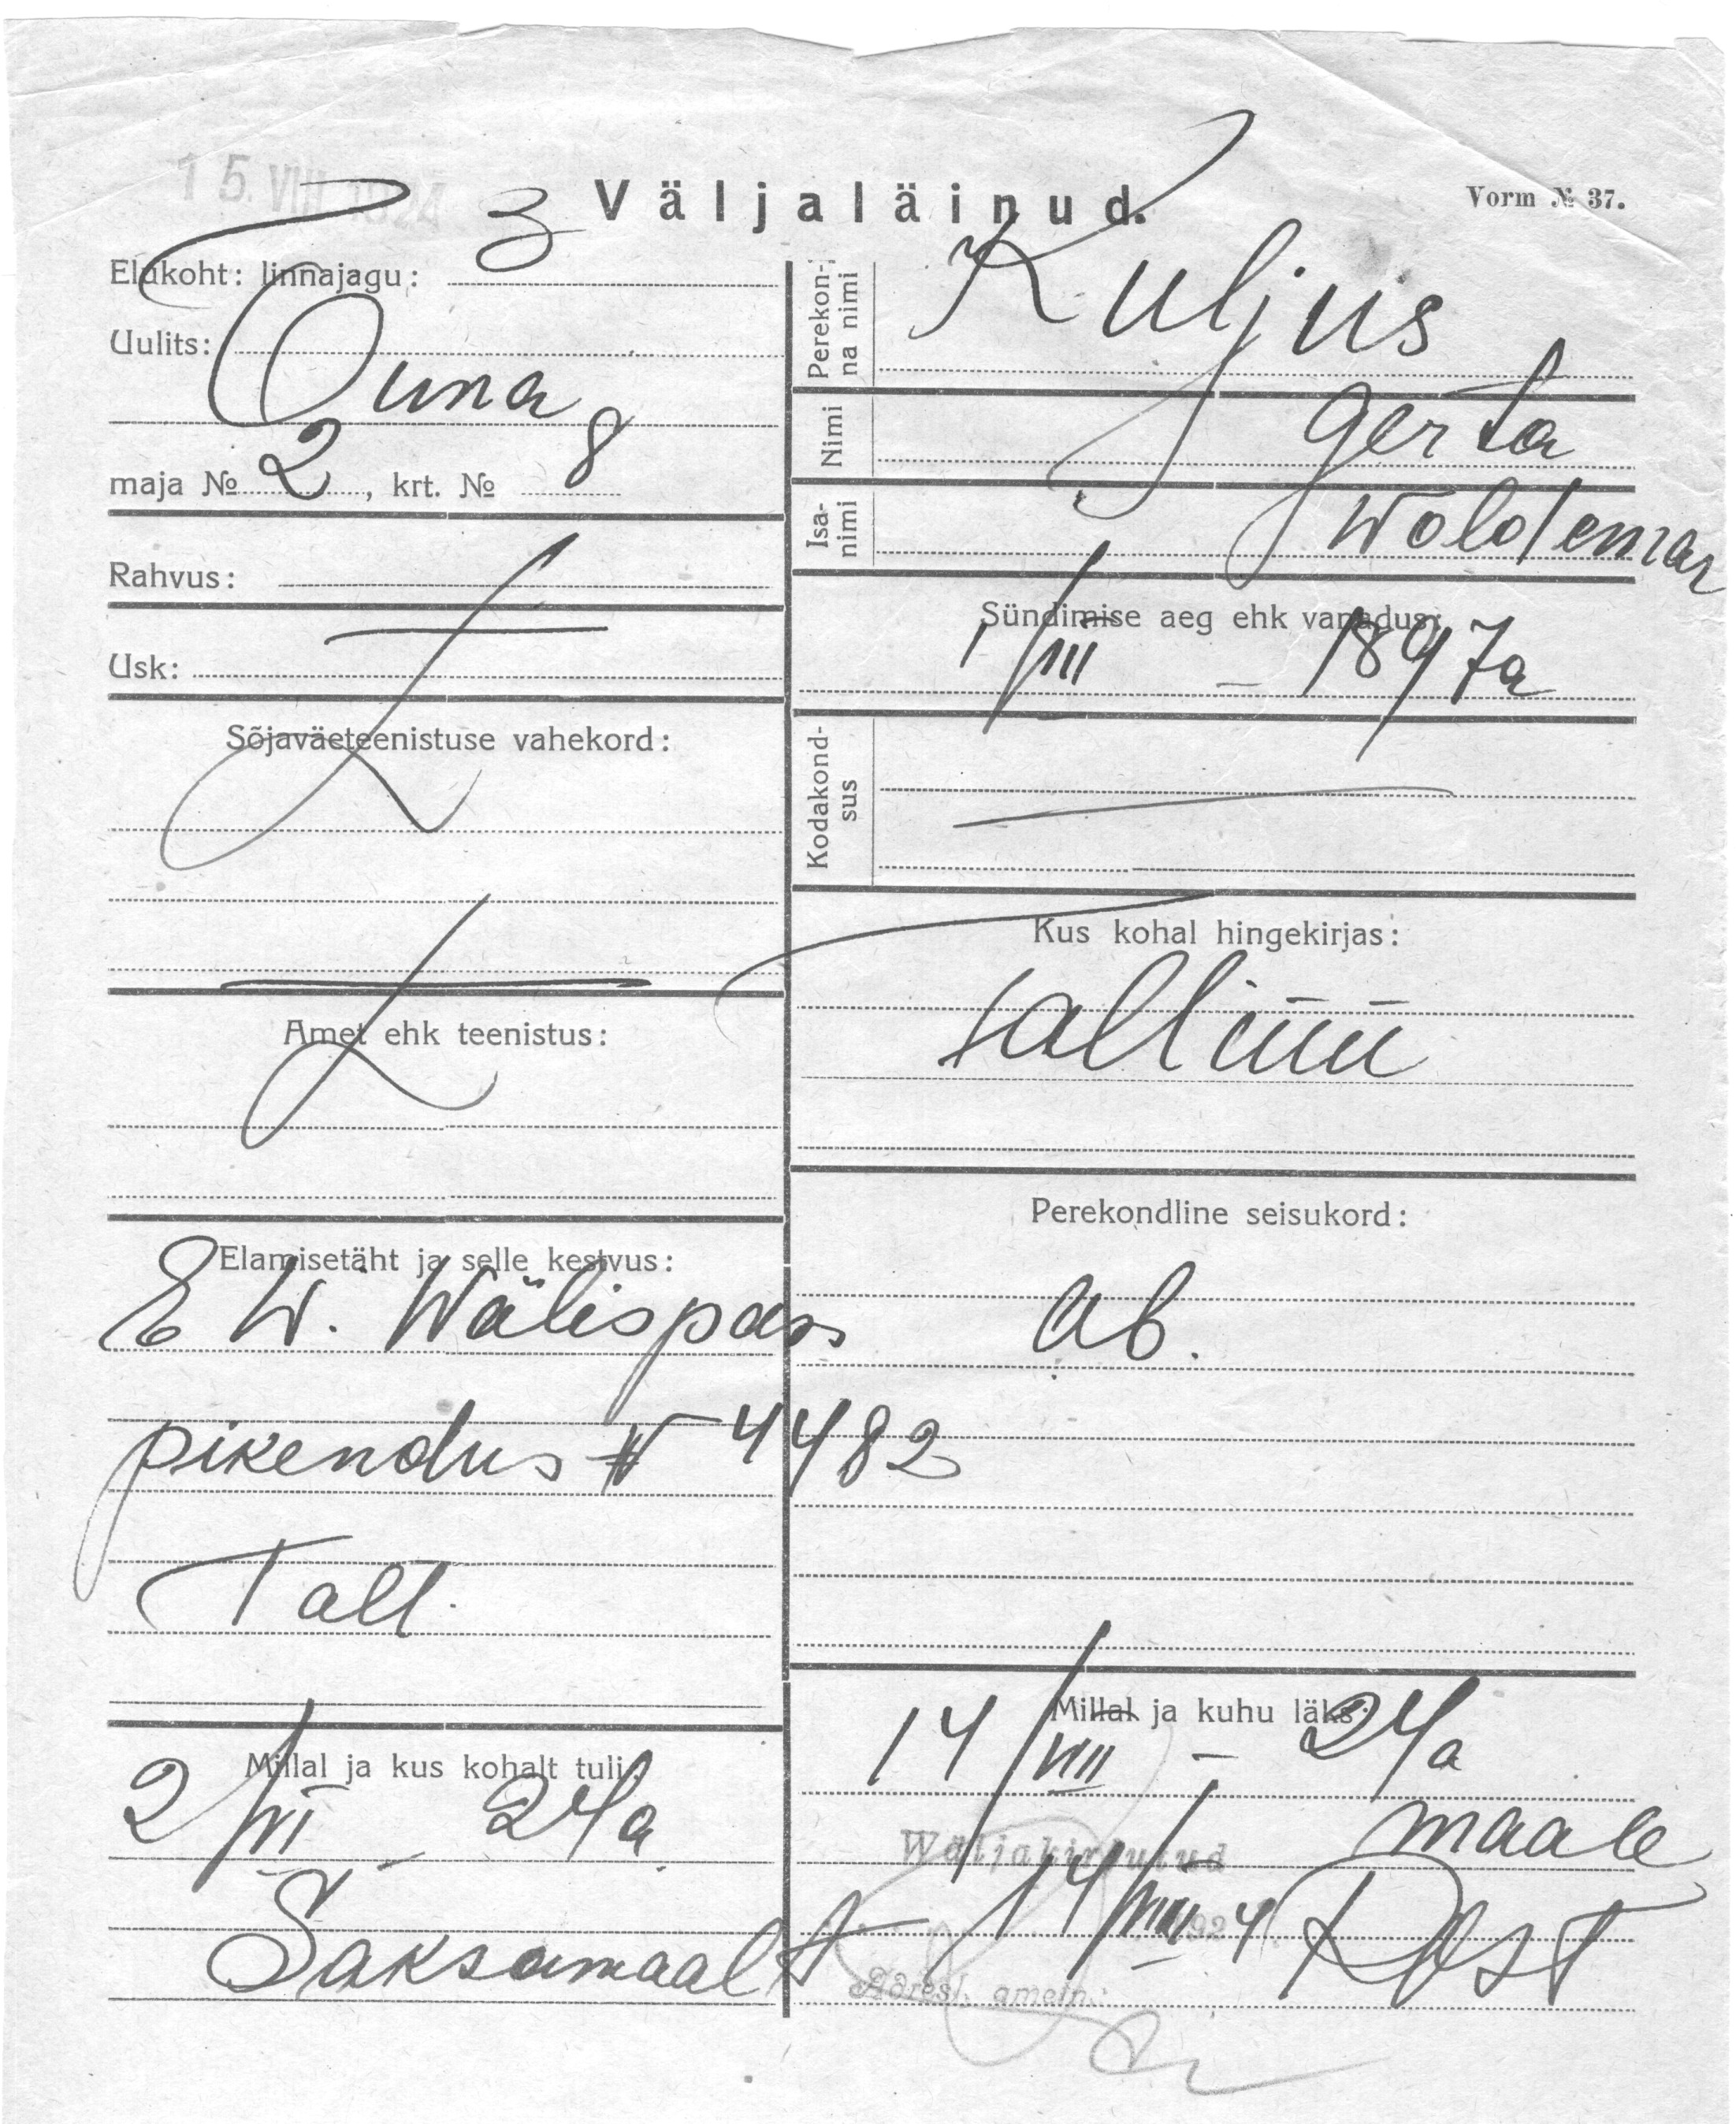 15. VIII 1924
Väljaläinud.
Vorm № 37.
Elukoht: linnajagu: 3
Uulits:
Õuna
maja № 2, krt. № 8
Rahvus:
Usk:
Sõjaväeteenistuse vahekord:
Amet ehk teenistus:
Elamisetäht ja selle kestvus:
E W. Wälispass
pikendus № 4482
Tall.
Millal ja kus kohalt tuli:
2/VI – 24a
Saksamaalt
Perekon-
na nimi
Kuljus
Nimi
Gerta
Isa-
nimi
Woldemar
Sündimise aeg ehk vanadus:
1/III – 1897a
Kodakond-
sus
Kus kohal hingekirjas:
Tallinn
Perekondline seisukord:
ab.
Millal ja kuhu läks:
14/VIII – 24a
maale
Wäljakirjutud
14/VIII 1924
Adresl. ametn.: